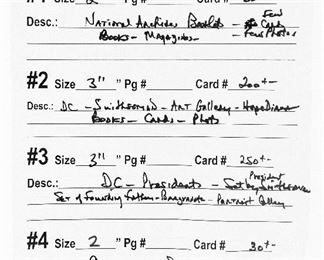 Size 2 " Pg # Card #
Desc.: National Archives Booklets - Few Cards
Books - Magazines - Few Photos
#2 Size 3" " Pg # Card # 200+-
Desc.: DC - Smithsonian - Art Gallery - Hope Diamond
Books - Cards - Photos
#3 Size 3" " Pg # Card # 250+-
President
Desc.: DC - Presidents - Set by Smithsonian
Set of Founding Fathers - Portrait Gallery
#4 Size 2 " Pg # Card # 30+-